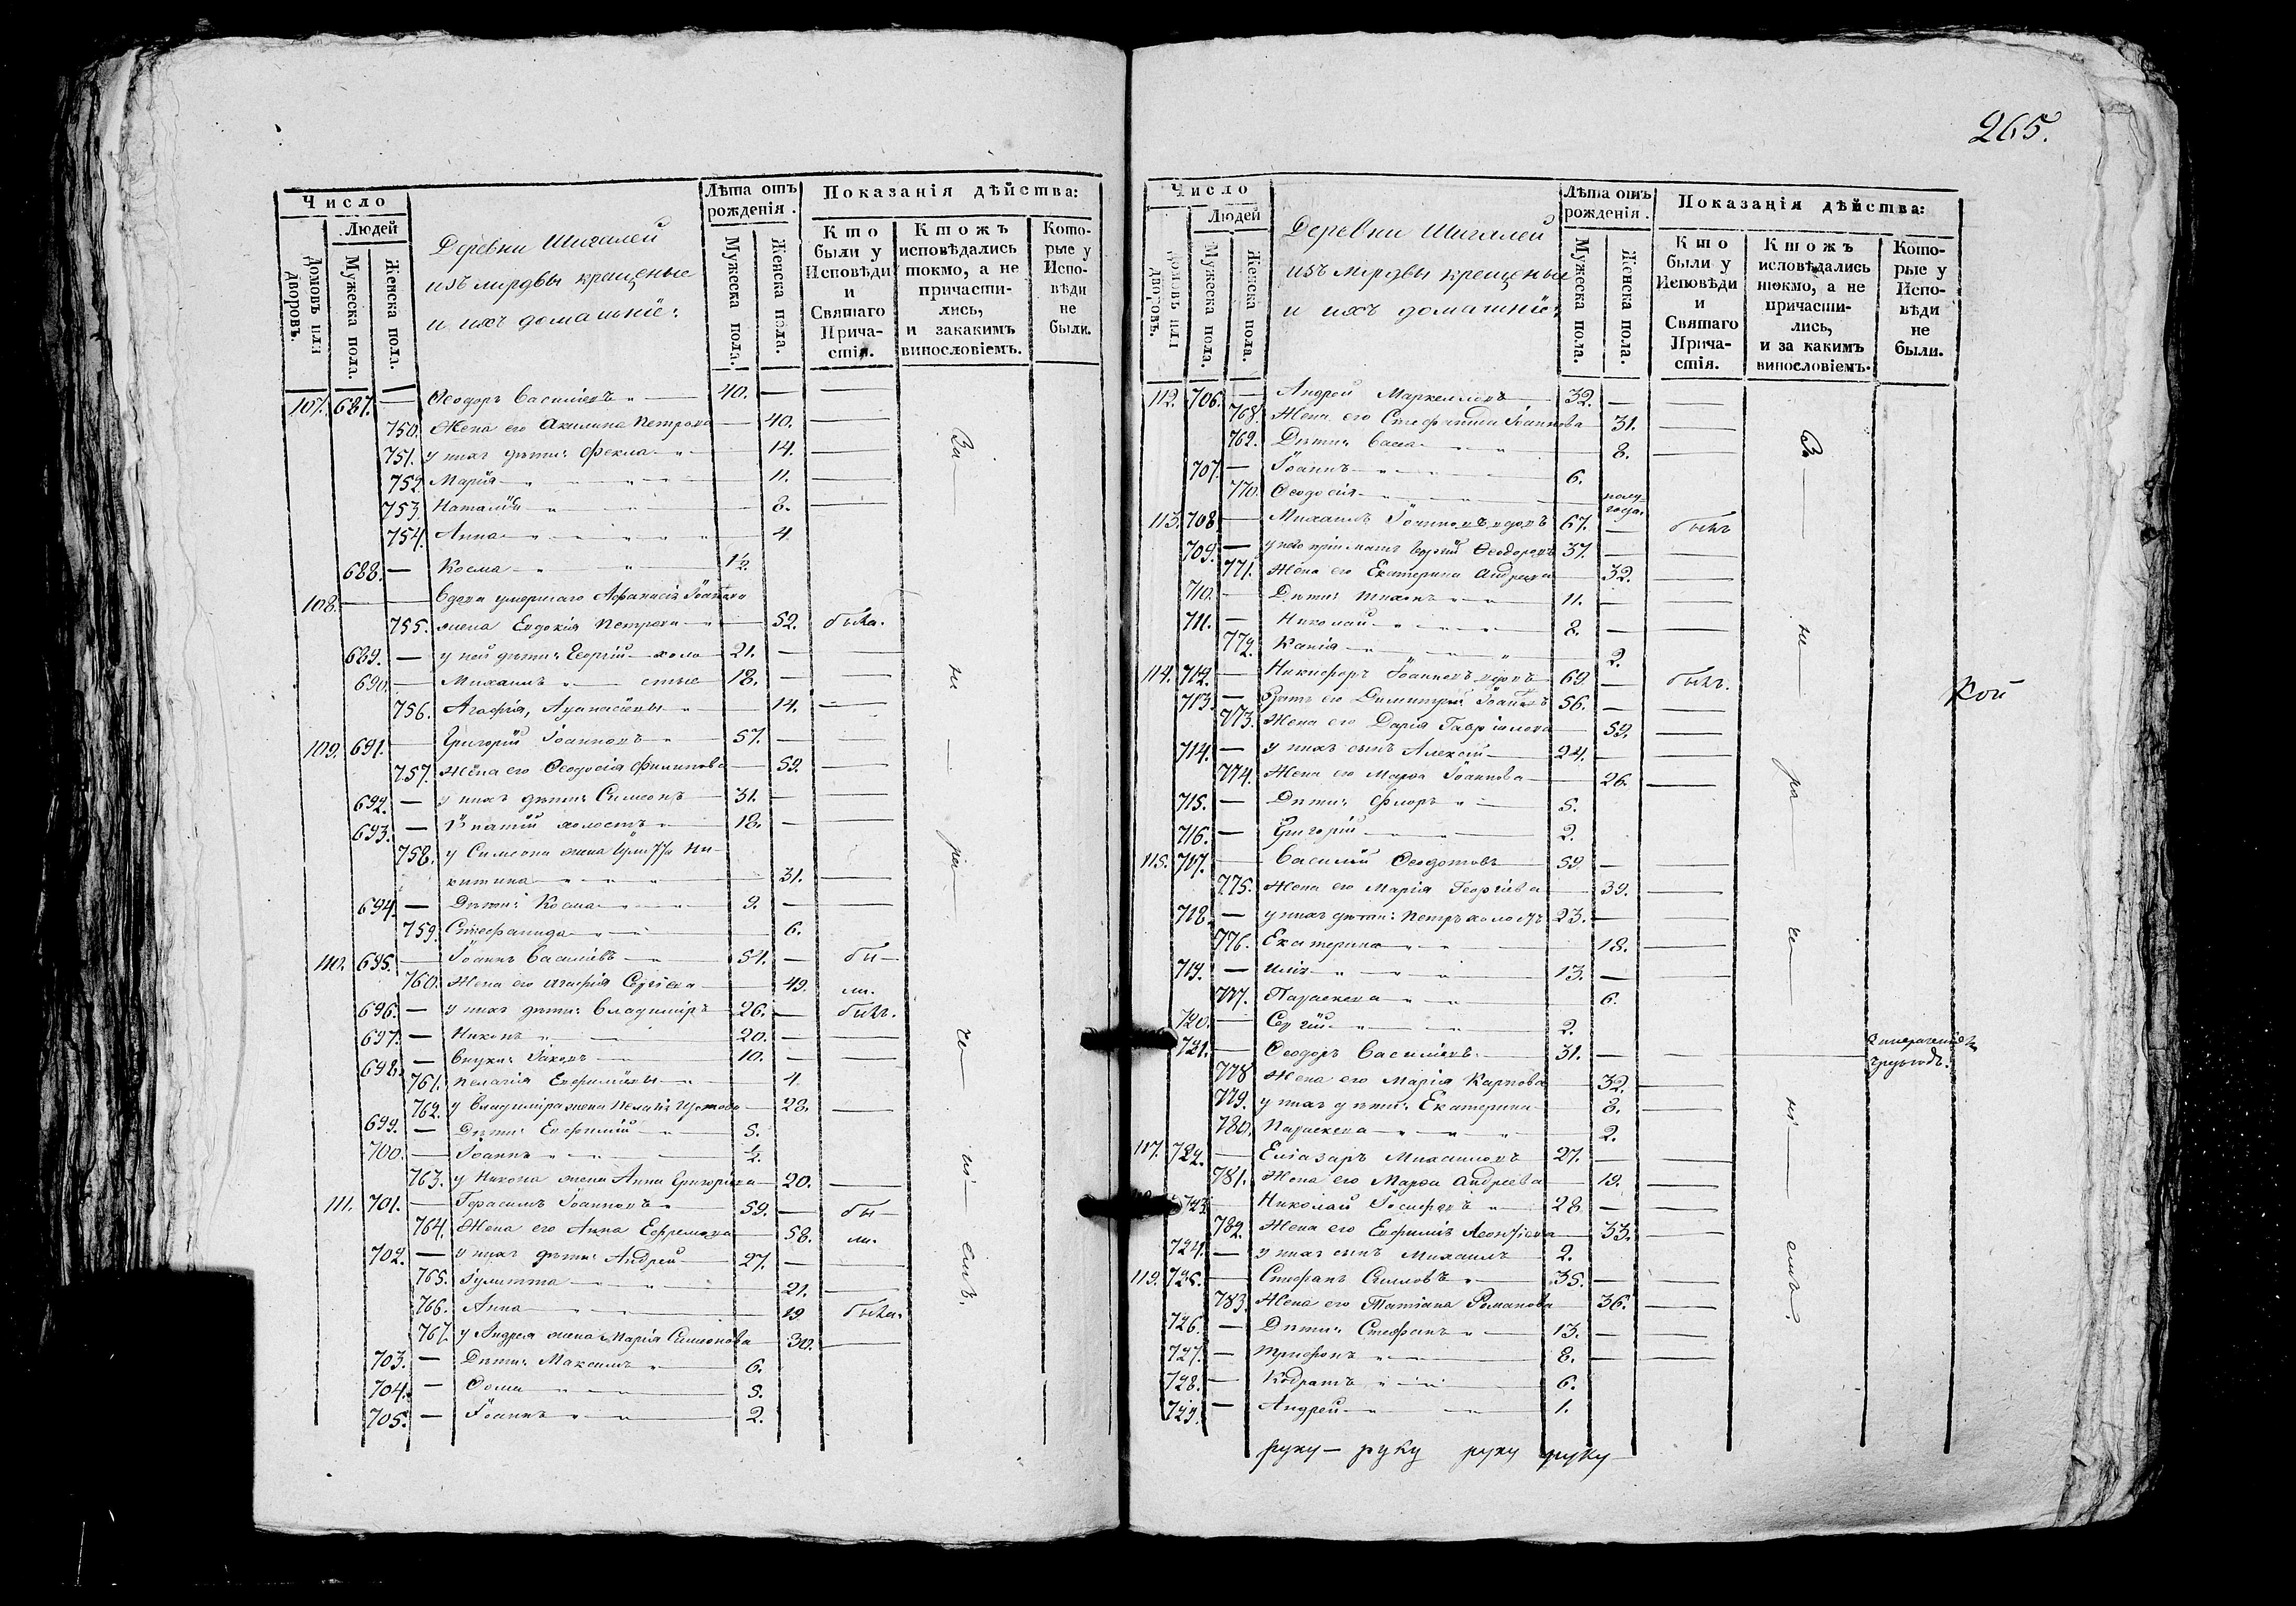 265.
Число
Людей
Домовъ или дворовъ.
Мужеска пола.
Женска пола.
Деревни Шигалей
изъ мордвы крещеные
и ихъ домашніе:
Лѣта отъ рожденія.
Мужеска пола.
Женска пола.
Показанія дѣйства:
Кто были у Исповѣди и Святаго Причастія.
Ктожъ исповѣдались токмо, а не причастились, и закакимъ винословіемъ.
Которые у Исповѣди не были.
107. 687. — Ѳеодоръ Василіевъ 40. —
750. Жена его Акилина Петрова 40. —
751. у нихъ дѣти: Фекла 14. —
752. Марія 11. —
753. Наталія 8. —
754. Анна 4
688. — Косма 1½
108. — Вдова умершаго Аѳанасія Іоаннова
755. жена Евдокія Петрова 52. была.
689. — у ней дѣти: Георгій холо 21. —
690. — Михаилъ стые 18. —
756. Агафія, Аѳанасіевы 14. —
109. 691. — Григорій Іоанновъ 57. —
757. Жена его Ѳеодосія Филиппова 59. —
692. — у нихъ дѣти: Симеонъ 31. —
693. — Игнатій холостъ 18. —
758. у Симеона жена Іулитта Ни-
китина 31. —
694. — Дѣти: Косма 9. —
759. Стефанида 6.
110. 695. — Іоаннъ Василіевъ 54. — бы-
760. Жена его Агафія Сергіева 49. ли.
696. — у нихъ дѣти: Владиміръ 26. — былъ.
697. — Никонъ 20. —
698. — Внуки: Іаковъ 10. —
761. Пелагія Евфиміевы 4.
762. у Владиміра жена Пелагія 28. —
699. — Дѣти: Евфимій 5.
700. — Іоаннъ ½.
763. у Никона жена Анна Григоріева 20. —
111. 701. — Герасимъ Іоанновъ 59. — бы-
764. Жена его Анна Ефремова 58. ли.
702. — у нихъ дѣти: Андрей 27. —
765. Іулитта 21. —
766. Анна 19 была.
767. у Андрея жена Марія Симеонова 30. —
703. — Дѣти: Максимъ 6.
704. — Ѳома 5.
705. — Іоаннъ 2.
За — не — ра — че — ні — емъ.
Число
Людей
Домовъ или дворовъ.
Мужеска пола.
Женска пола.
Деревни Шигалей
изъ мордвы крещеные
и ихъ домашніе:
Лѣта отъ рожденія.
Мужеска пола.
Женска пола.
Показанія дѣйства:
Кто были у Исповѣди и Святаго Причастія.
Ктожъ исповѣдались токмо, а не причастились, и за какимъ винословіемъ.
Которые у Исповѣди не были.
112. 706. — Андрей Маркелловъ 32. —
768. Жена его Стефанида Іоаннова 31. —
769. Дѣти: Васса 8. —
707. — Іоаннъ 6.
770. Ѳеодосія полу-
года.
113. 708 — Михаилъ Іоанновъ вдовъ 67. — былъ
709. — у него пріимать Сергій Ѳеодоровъ 37. —
771. Жена его Екатерина Андреева 32. —
710. — Дѣти: Тихонъ 11. —
711. — Николай 8. —
772. Ксенія 2.
114. 712. — Никифоръ Іоанновъ вдовъ 69. былъ.
713. — Зять его Димитрій Іоанновъ 56. —
773. Жена его Дарія Гавріилова 59. —
714. — у нихъ сынъ Алексій 24. —
774. Жена его Марѳа Іоаннова 26. —
715. — Дѣти: Флоръ 5.
716. — Григорій 2.
115. 717. — Василій Ѳеодотовъ 59 —
775. Жена его Марія Георгіева 39. —
718. — у нихъ дѣти: Петръ холостъ 23. —
776. Екатерина 18. —
719. — Илія 13. —
777. Параскева 6.
720. — Сергій 2.
721. — Ѳеодоръ Василіевъ 31. —
778 Жена его Марія Карпова 32. —
779. у нихъ дѣти: Екатерина 8. —
780. Параскева 2.
117. 722. — Еліазаръ Михаиловъ 27. —
781. Жена его Марѳа Андреева 19. —
723. Николай Іосифовъ 28 —
782. Жена его Евфимія Леонтіева 33. —
724. — у нихъ сынъ Михаилъ 2.
119. 725. — Стефанъ Симовъ 35. —
783 Жена его Татіана Романова 36. —
726. — Дѣти: Стефанъ 13. —
727. — Трифонъ 8. —
728. — Кодратъ 6.
729. — Андрей 1.
За — не — ра — че — ні — емъ.
кой
руку — руку руку руку